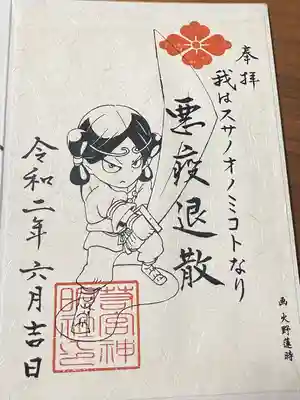 奉拝
我はスサノオノミコトなり
悪疫退散
令和二年 六月吉日
画 火野蓮時